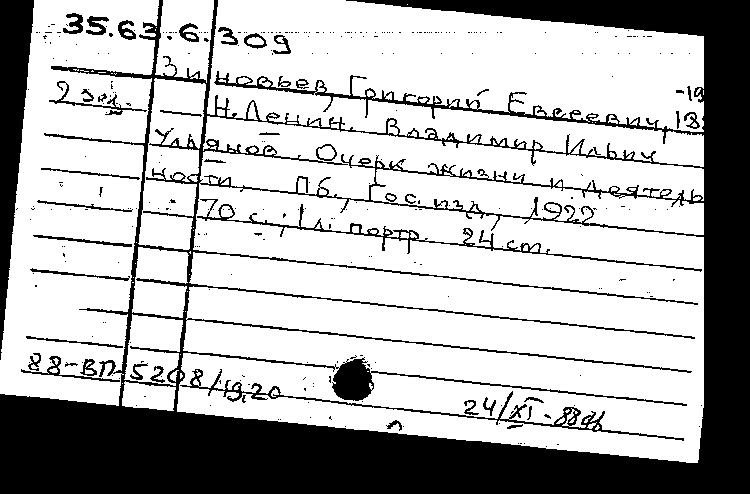 35.63.6.309
Зиновьев, Григорий Евсеевич,
2 экз.
Н. Ленин. Владимир Ильич
Ульянов. Очерк жизни и деятель
ности. Пб., Гос. изд., 1922.
70 с.; 1 л. портр. 24 см.
88-ВП-5208/19,20
24/XI-88